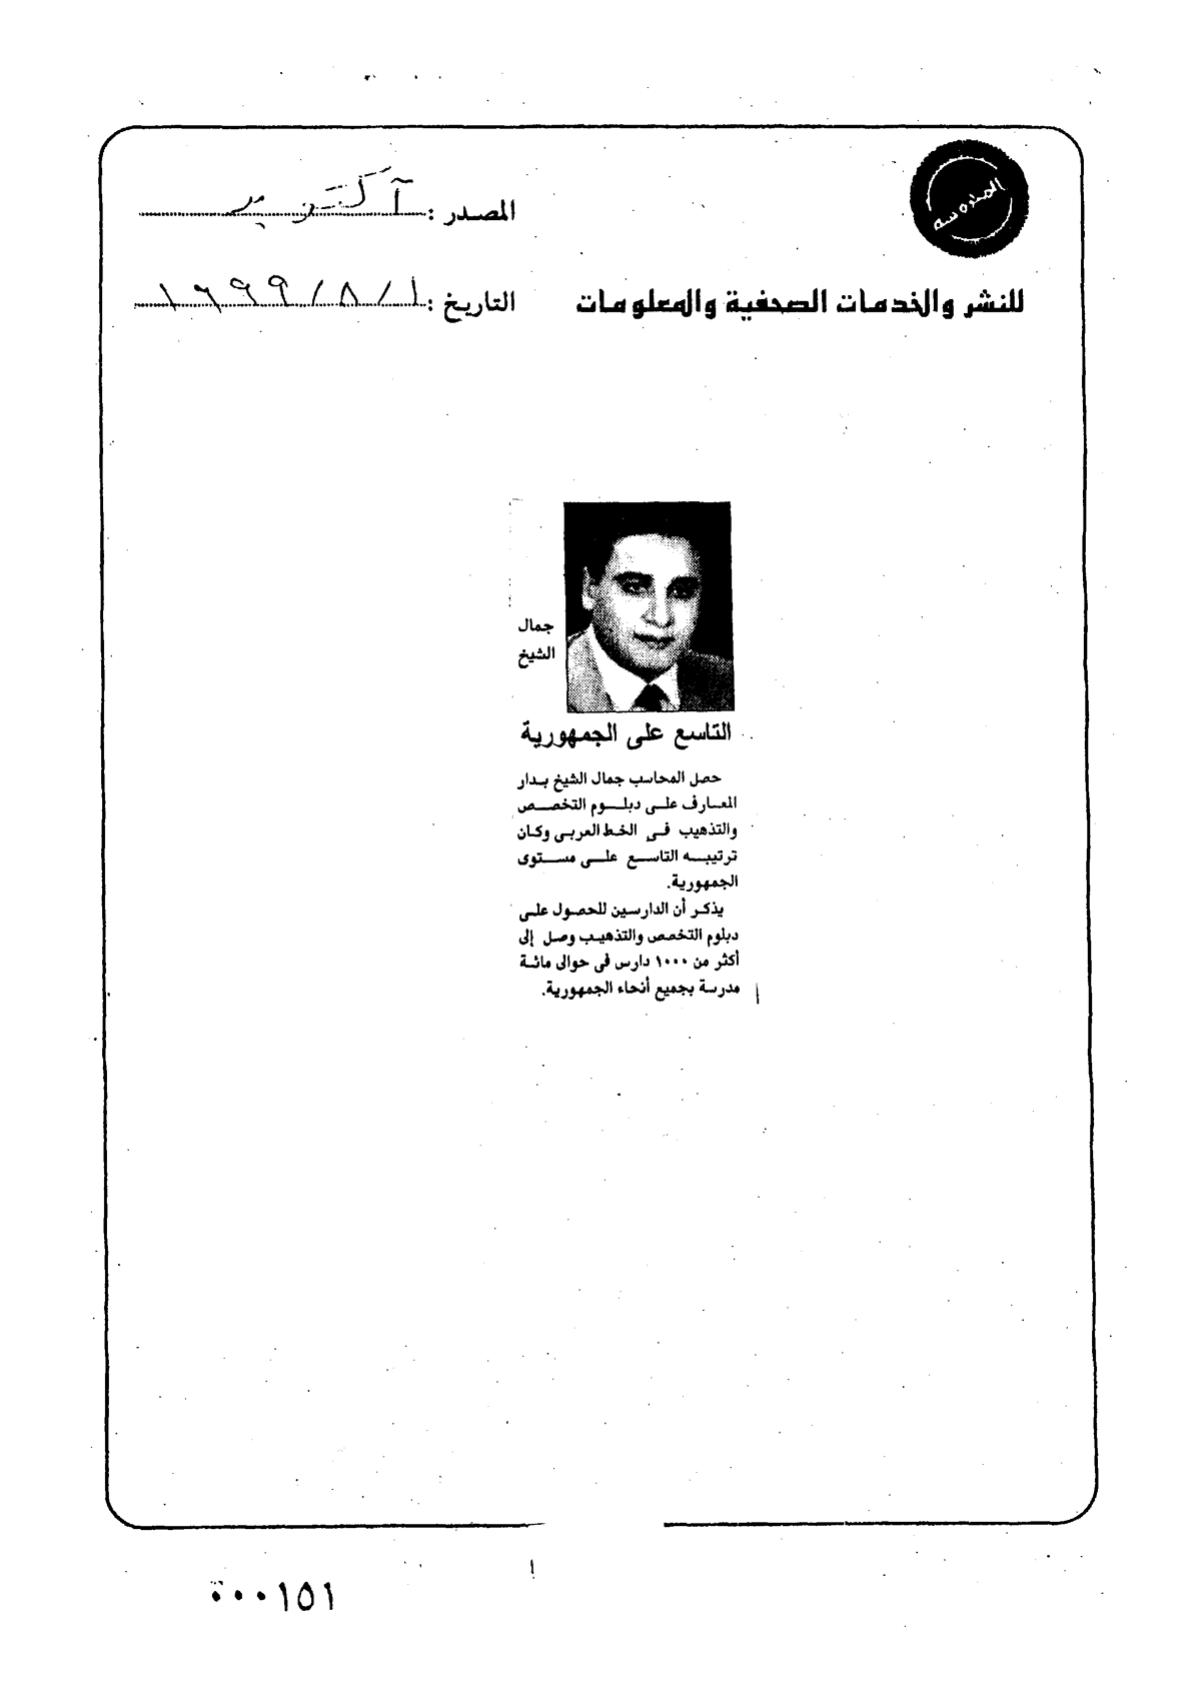 المصدر : آكتوبر
للنشر والخدمات الصحفية والمعلومات
التاريخ : ١ / ٨ / ١٩٩٩
جمال
الشيخ
التاسع على الجمهورية
حصل المحاسب جمال الشيخ بدار
المعارف على دبلوم التخصص
والتذهيب فى الخط العربى وكان
ترتيبه التاسع على مستوى
الجمهورية.
يذكر أن الدارسين للحصول على
دبلوم التخصص والتذهيب وصل إلى
أكثر من ١٠٠٠ دارس فى حوالى مائة
مدرسة بجميع أنحاء الجمهورية.
٠٠٠١٥١